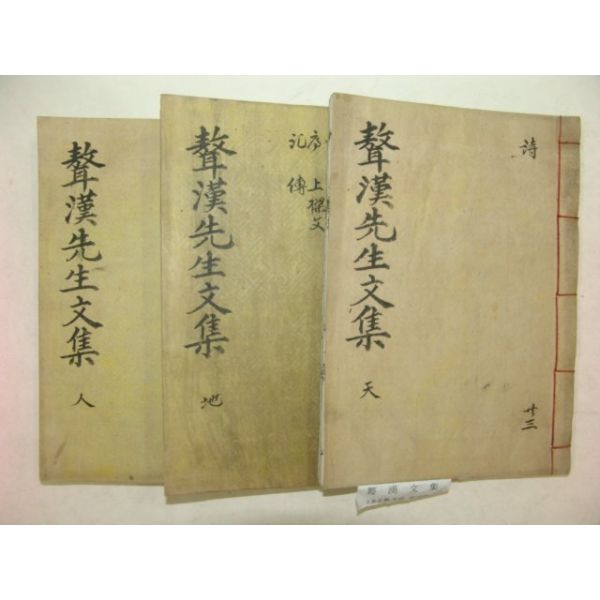 詩
聱漢先生文集
天
廾三
序 上樑文
記 傳
聱漢先生文集
地
聱漢先生文集
人
聱漢文集